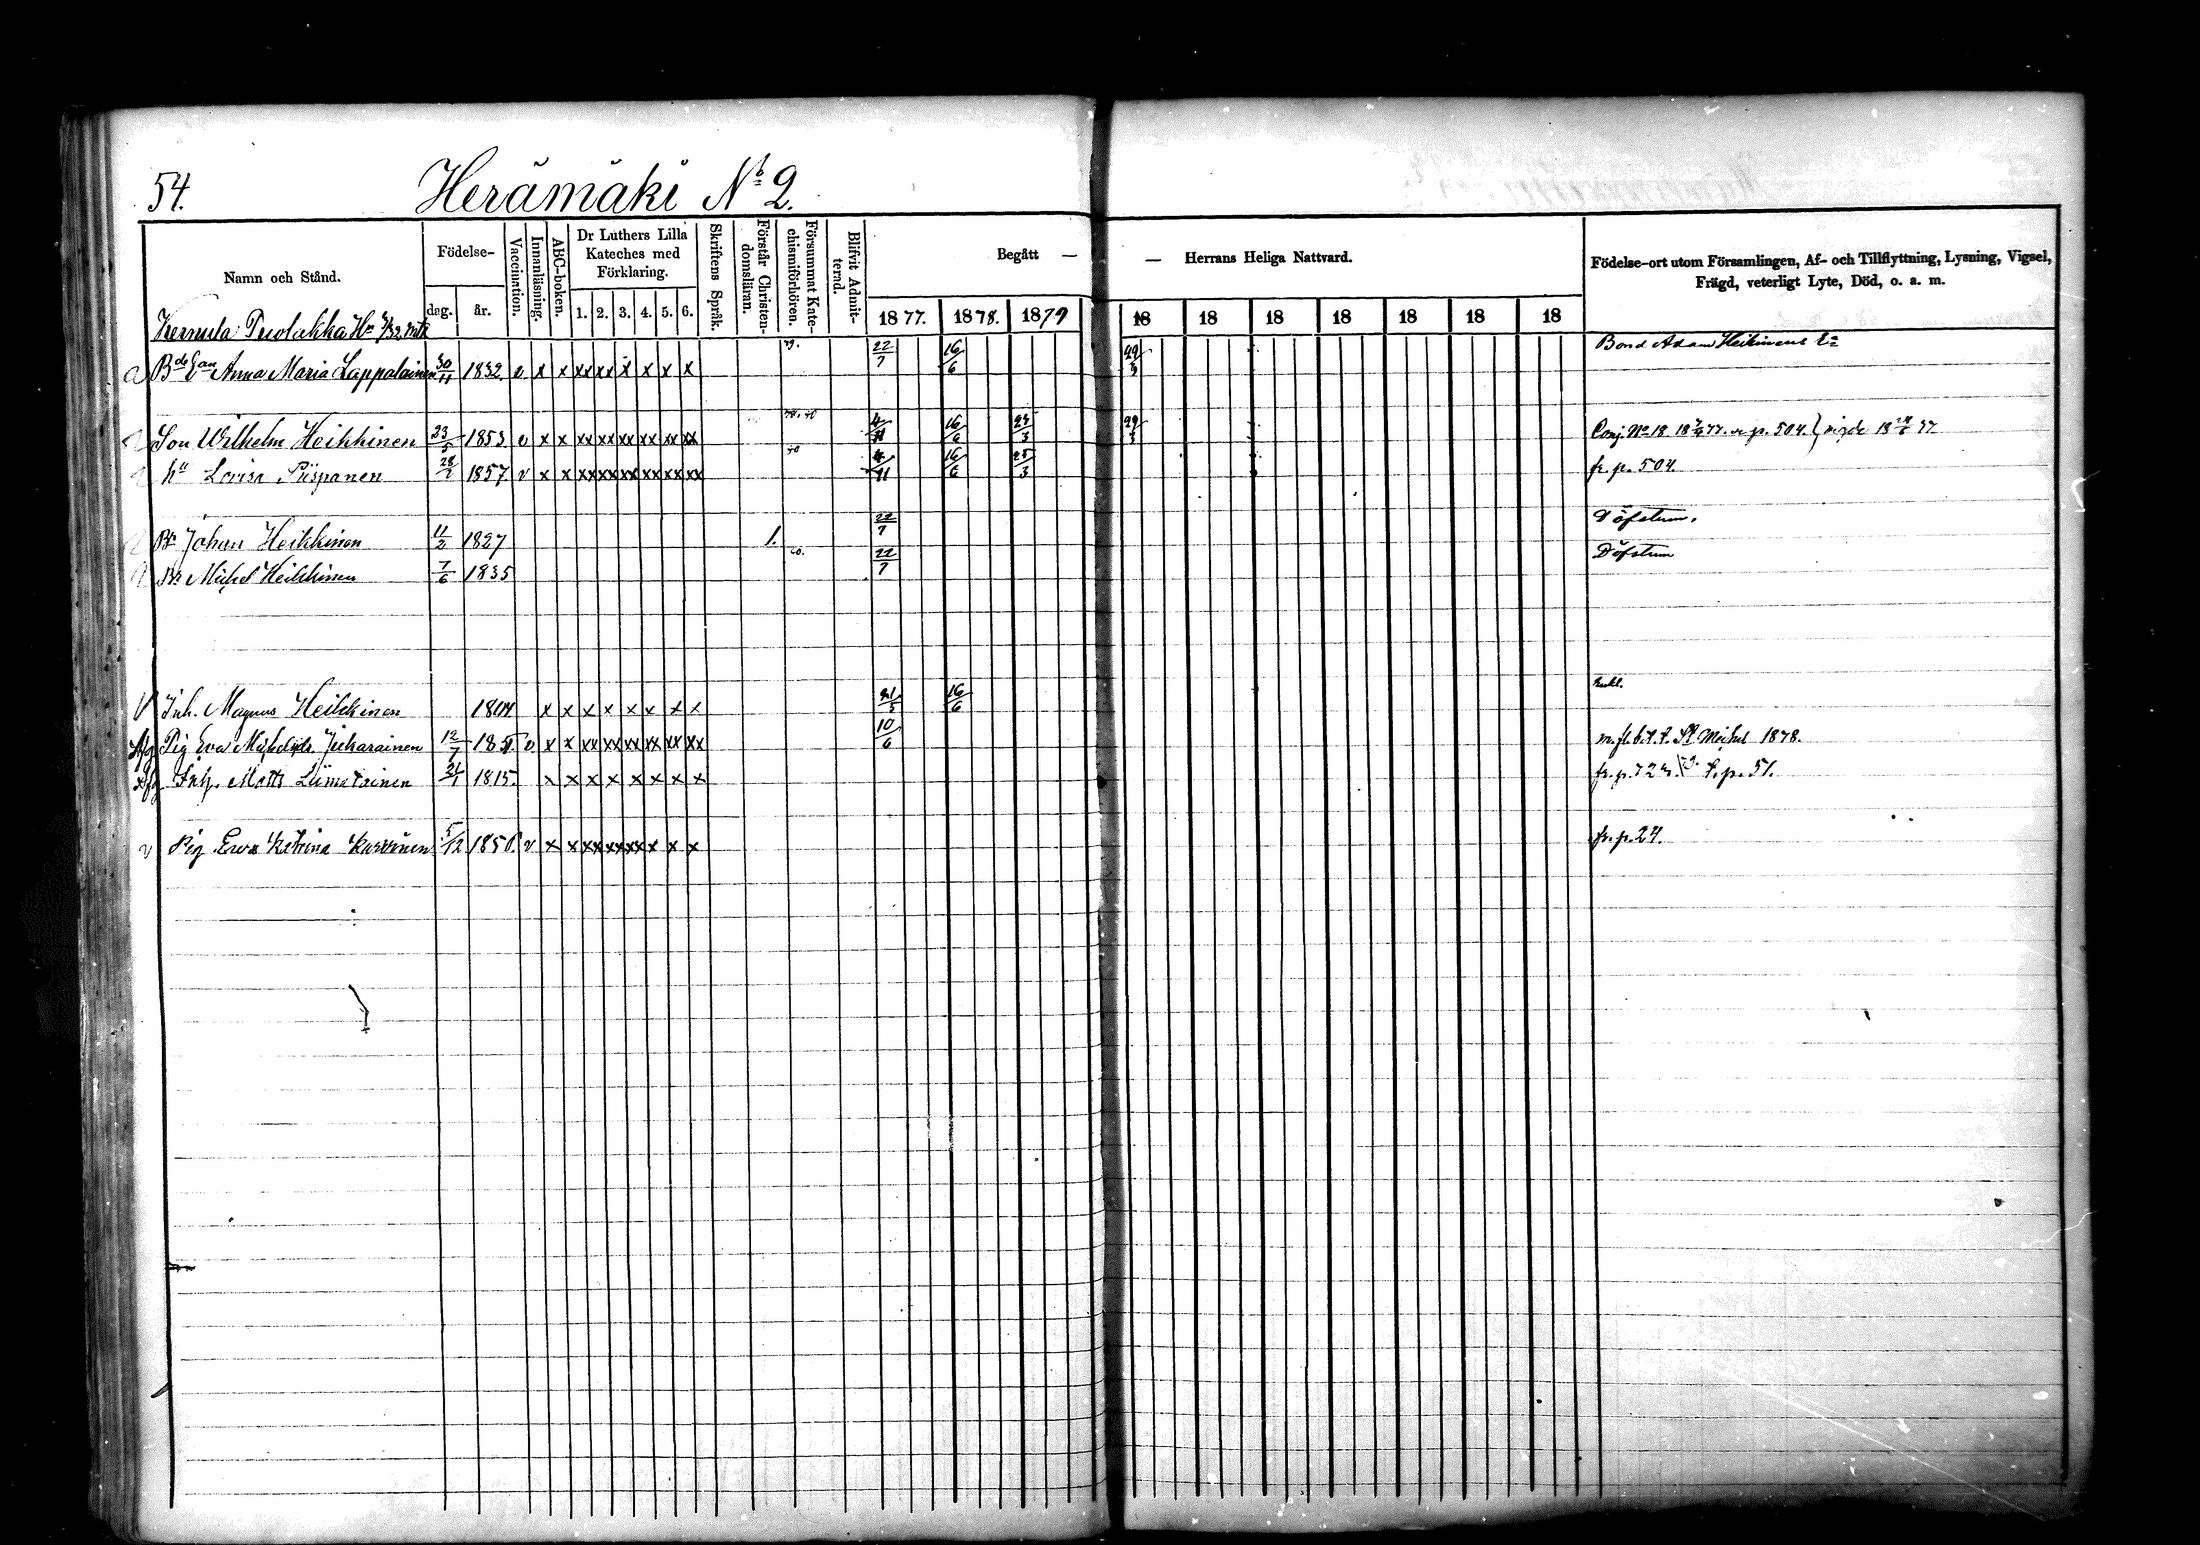 54. Herämäki No 2.
Namn och Stånd. Födelse- dag. år. Vaccination. Innanläsning. ABC-boken. Dr Luthers Lilla Kateches med Förklaring. 1. 2. 3. 4. 5. 6. Skriftens Språk. Förstår Christendomsläran. Försummat Katechismiförhören. Blifvit Admitterad. Begått — — Herrans Heliga Nattvard. Födelse-ort utom Församlingen, Af- och Tillflyttning, Lysning, Vigsel, Frägd, veterligt Lyte, Död, o. a. m.
1877. 1878. 1879 18 18 18 18 18 18 18
Anna Maria Lappalainen 30/11 1832. v x x xx xx x x x x 79. 22/7 16/6 29/3 Bond Adam Heikinens
Son Wilhelm Heikkinen 23/5 1853. v x x xx xx xx xx xx xx 4/11 16/6 23/3 29/3 Conj. No 18 p. 504. vigde
hu Lovisa Piispanen 28/2 1857. v x x xx xx xx xx xx xx 4/11 16/6 23/3 fr. p. 504.
Br Johan Heikkinen 11/2 1827 1. 22/7 Döfstum.
Br Michel Heikkinen 7/6 1835 22/7 Döfstum
Inh. Magnus Heikkinen x x x x x x x x 21/5 16/6
Pig Eva Juharainen 12/7 v x x xx xx xx xx xx xx 10/6 St Michel 1878.
Inh. Matts Liimatainen 21/1 1815. x x x x x x x x p. 51.
Pig Eva Katrina 5/12 1856. v x x xx xx xx x x x fr. p. 24.